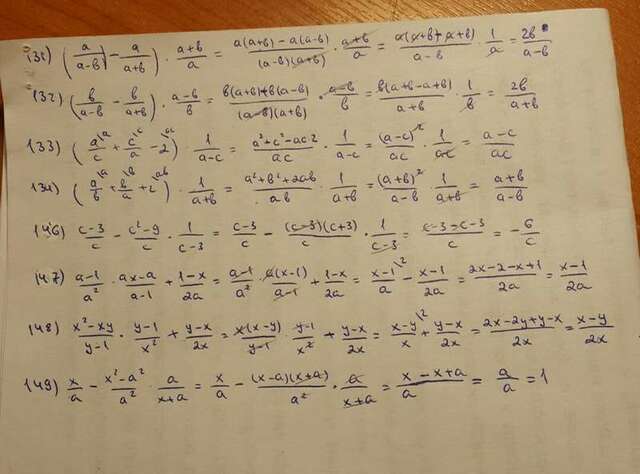 131) (a/(a-в) - a/(a+в)) · (a+в)/a = (a(a+в)-a(a-в))/((a-в)(a+в)) · (a+в)/a = a(a+в-a+в)/(a-в) · 1/a = 2в/(a-в)
132) (в/(a-в) - в/(a+в)) · (a-в)/в = (в(a+в)+в(a-в))/((a-в)(a+в)) · (a-в)/в = в(a+в-a+в)/(a+в) · 1/в = 2в/(a+в)
133) (a\a/c + c\c/a - 2\ac) · 1/(a-c) = (a²+c²-ac2)/ac · 1/(a-c) = (a-c)²/ac · 1/(a-c) = (a-c)/ac
134) (a\a/в + в\в/a + 2\aв) · 1/(a+в) = (a²+в²+2aв)/aв · 1/(a+в) = (a+в)²/(a-в) · 1/(a+в) = (a+в)/(a-в)
146) (c-3)/c - (c²-9)/c · 1/(c-3) = (c-3)/c - (c-3)(c+3)/c · 1/(c-3) = (c-3-c-3)/c = -6/c
147) (a-1)/a² · (ax-a)/(a-1) + (1-x)/2a = (a-1)/a² · a(x-1)/(a-1) + (1-x)/2a = (x-1)\2/a - (x-1)/2a = (2x-2-x+1)/2a = (x-1)/2a
148) (x²-xy)/(y-1) · (y-1)/x² + (y-x)/2x = x(x-y)/(y-1) · (y-1)/x² + (y-x)/2x = (x-y)\2/x + (y-x)/2x = (2x-2y+y-x)/2x = (x-y)/2x
149) x/a - (x²-a²)/a² · a/(x+a) = x/a - (x-a)(x+a)/a² · a/(x+a) = (x-x+a)/a = a/a = 1